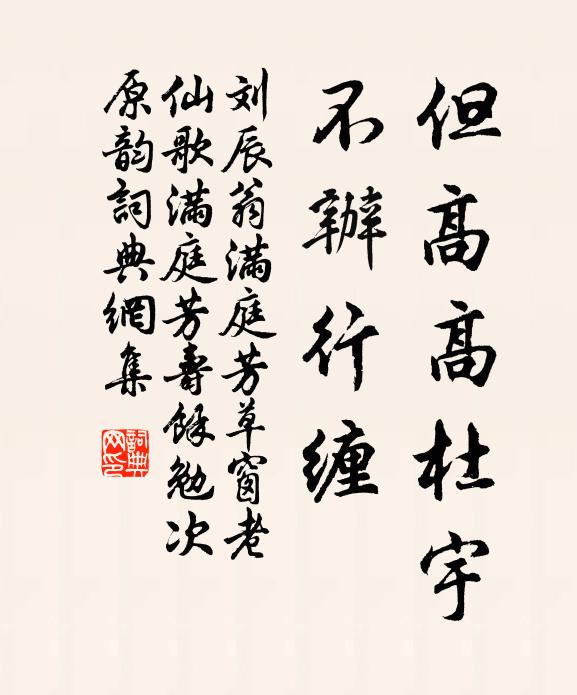 但高高杜宇
不辦行缠
刘辰翁满庭芳草窗老
仙歌满庭芳壽餘勉次
原韵詞典網集
詞典网印